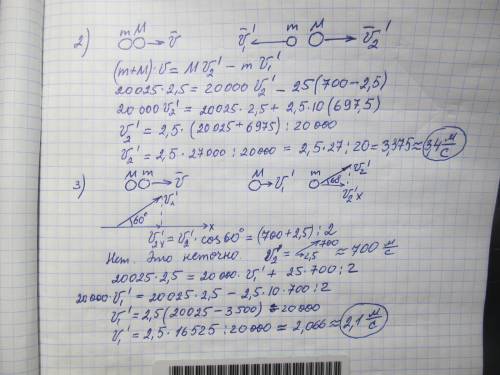 2) m M → v̄   v̄₁' ← m M → v̄₂'
(m+M)·v = Mv₂' − mv₁'
20025·2,5 = 20000v₂' − 25(700−2,5)
20000v₂' = 20025·2,5 + 2,5·10(697,5)
v₂' = 2,5·(20025+6975):20000
v₂' = 2,5·27000:20000 = 2,5·27:20 = 3,375 ≈ 3,4 м/с
3) M m → v̄   M → v₁'   m 60° v̄₂' v₂'x
v₂' 60° x
v₂'x = v₂'·cos60° = (700+2,5):2
Нет. Это неточно. v₂' = 700 2,5 ≈ 700 м/с
20025·2,5 = 20000·v₁' + 25·700:2
20000·v₁' = 20025·2,5 − 2,5·10·700:2
v₁' = 2,5(20025−3500):20000
v₁' = 2,5·16525:20000 = 2,066 ≈ 2,1 м/с